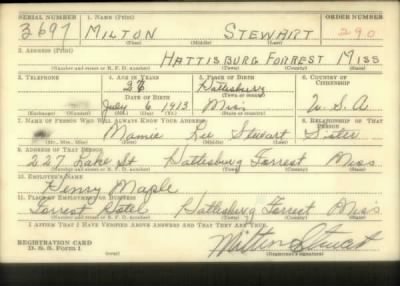 SERIAL NUMBER 1. NAME (Print) ORDER NUMBER
3697 MILTON STEWART 290
(First) (Middle) (Last)
2. ADDRESS (Print)
HATTISBURG FORREST MISS
(Number and street or R. F. D. number) (Town) (County) (State)
3. TELEPHONE 4. AGE IN YEARS 5. PLACE OF BIRTH 6. COUNTRY OF CITIZENSHIP
Hattesburg
DATE OF BIRTH (Town or county)
July 6 1913 Miss U. S. A
(Exchange) (No.) (Mo.) (Day) (Yr.) (State or country)
7. NAME OF PERSON WHO WILL ALWAYS KNOW YOUR ADDRESS 8. RELATIONSHIP OF THAT PERSON
Mamie Lee Stewart Sister
(Mr., Mrs., Miss) (First) (Middle) (Last)
9. ADDRESS OF THAT PERSON
227 Lake St Hattesburg Forrest Miss
(Number and street or R. F. D. number) (Town) (County) (State)
10. EMPLOYER'S NAME
Henry Maple
11. PLACE OF EMPLOYMENT OR BUSINESS
Forrest Hotel Hattesburg Forrest Miss
(Number and street or R. F. D. number) (Town) (County) (State)
I AFFIRM THAT I HAVE VERIFIED ABOVE ANSWERS AND THAT THEY ARE TRUE.
REGISTRATION CARD
D. S. S. Form 1 Milton Stewart
(over) (Registrant's signature)